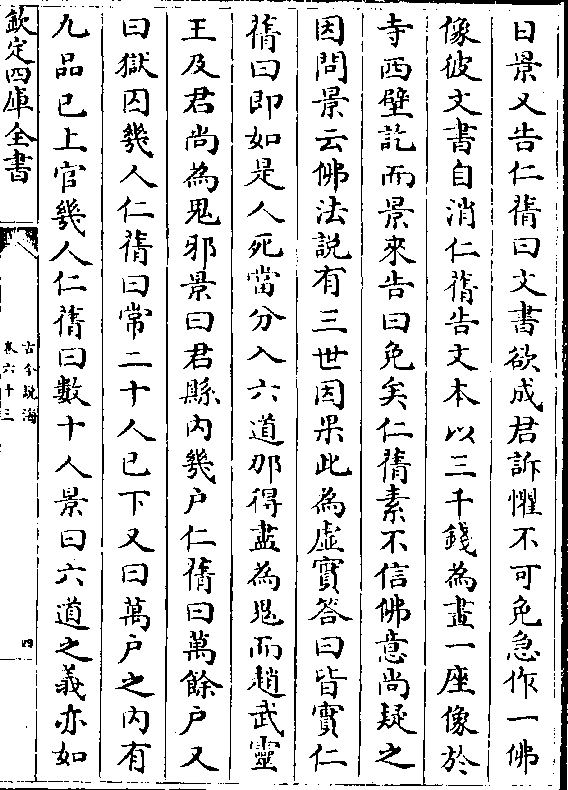 日景又告仁蒨曰文書欲成君訴懼不可免急作一佛
像彼文書自消仁蒨告文本以三千錢為畫一座像於
寺西壁訖而景來告曰免矣仁蒨素不信佛意尚疑之
因問景云佛法説有三世因果此為虛實答曰皆實仁
蒨曰即如是人死當分入六道那得盡為鬼而趙武靈
王及君尚為鬼邪景曰君縣内幾户仁蒨曰萬餘户又
曰獄囚幾人仁蒨曰常二十人已下又曰萬户之内有
九品已上官幾人仁蒨曰數十人景曰六道之義亦如
欽定四庫全書
古今説海
卷六十三
四